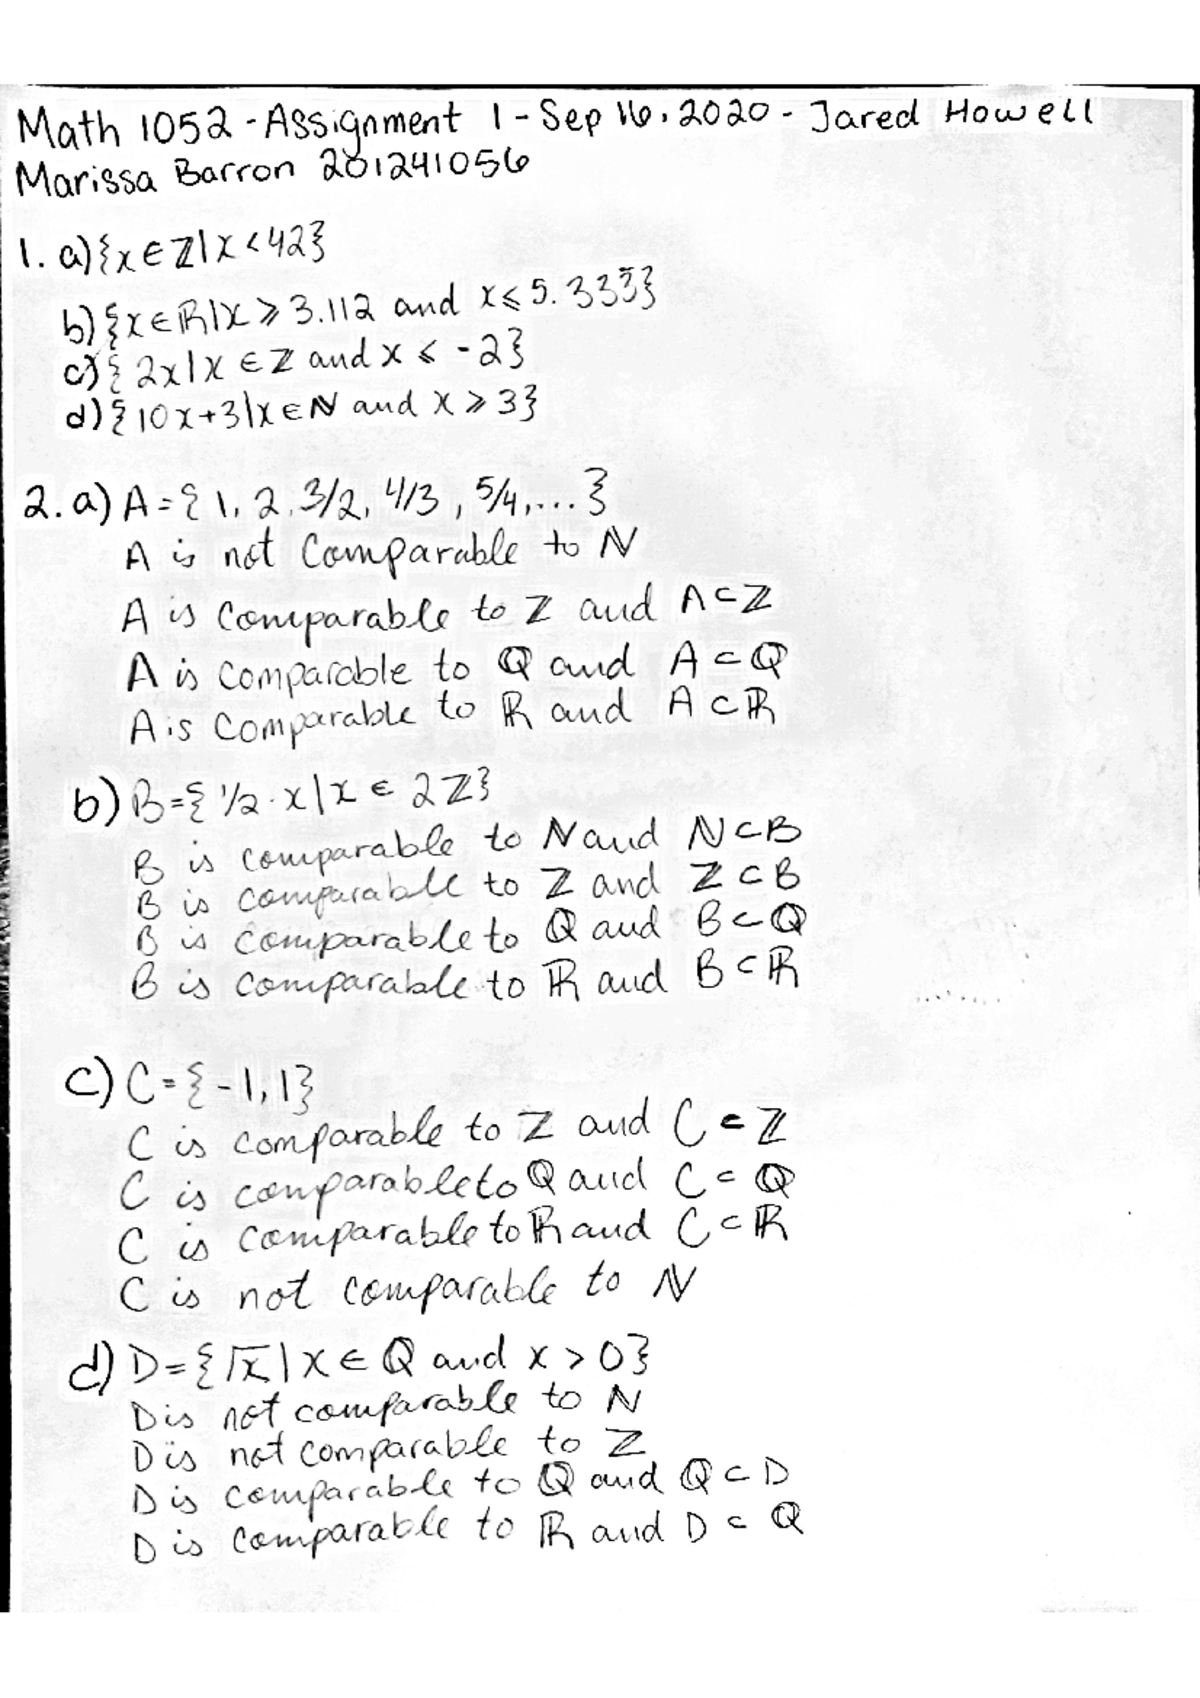 Math 1052 - Assignment 1 - Sep 16, 2020 - Jared Howell
Marissa Barron 201241056
1. a) {x ∈ ℤ | x < 42}
b) {x ∈ ℝ | x ⩾ 3.112 and x ⩽ 5.333}
c) { 2x | x ∈ ℤ and x ⩽ -2}
d) { 10x+3 | x ∈ ℕ and x ⩾ 3}
2. a) A = { 1, 2, 3/2, 4/3, 5/4, ... }
A is not comparable to ℕ
A is comparable to ℤ and A ⊂ ℤ
A is comparable to ℚ and A ⊂ ℚ
A is comparable to ℝ and A ⊂ ℝ
b) B = { 1/2 · x | x ∈ 2ℤ}
B is comparable to ℕ and ℕ ⊂ B
B is comparable to ℤ and ℤ ⊂ B
B is comparable to ℚ and B ⊂ ℚ
B is comparable to ℝ and B ⊂ ℝ
c) C = { -1, 1}
C is comparable to ℤ and C ⊂ ℤ
C is comparable to ℚ and C ⊂ ℚ
C is comparable to ℝ and C ⊂ ℝ
C is not comparable to ℕ
d) D = { √x | x ∈ ℚ and x > 0}
D is not comparable to ℕ
D is not comparable to ℤ
D is comparable to ℚ and ℚ ⊂ D
D is comparable to ℝ and D ⊂ ℚ